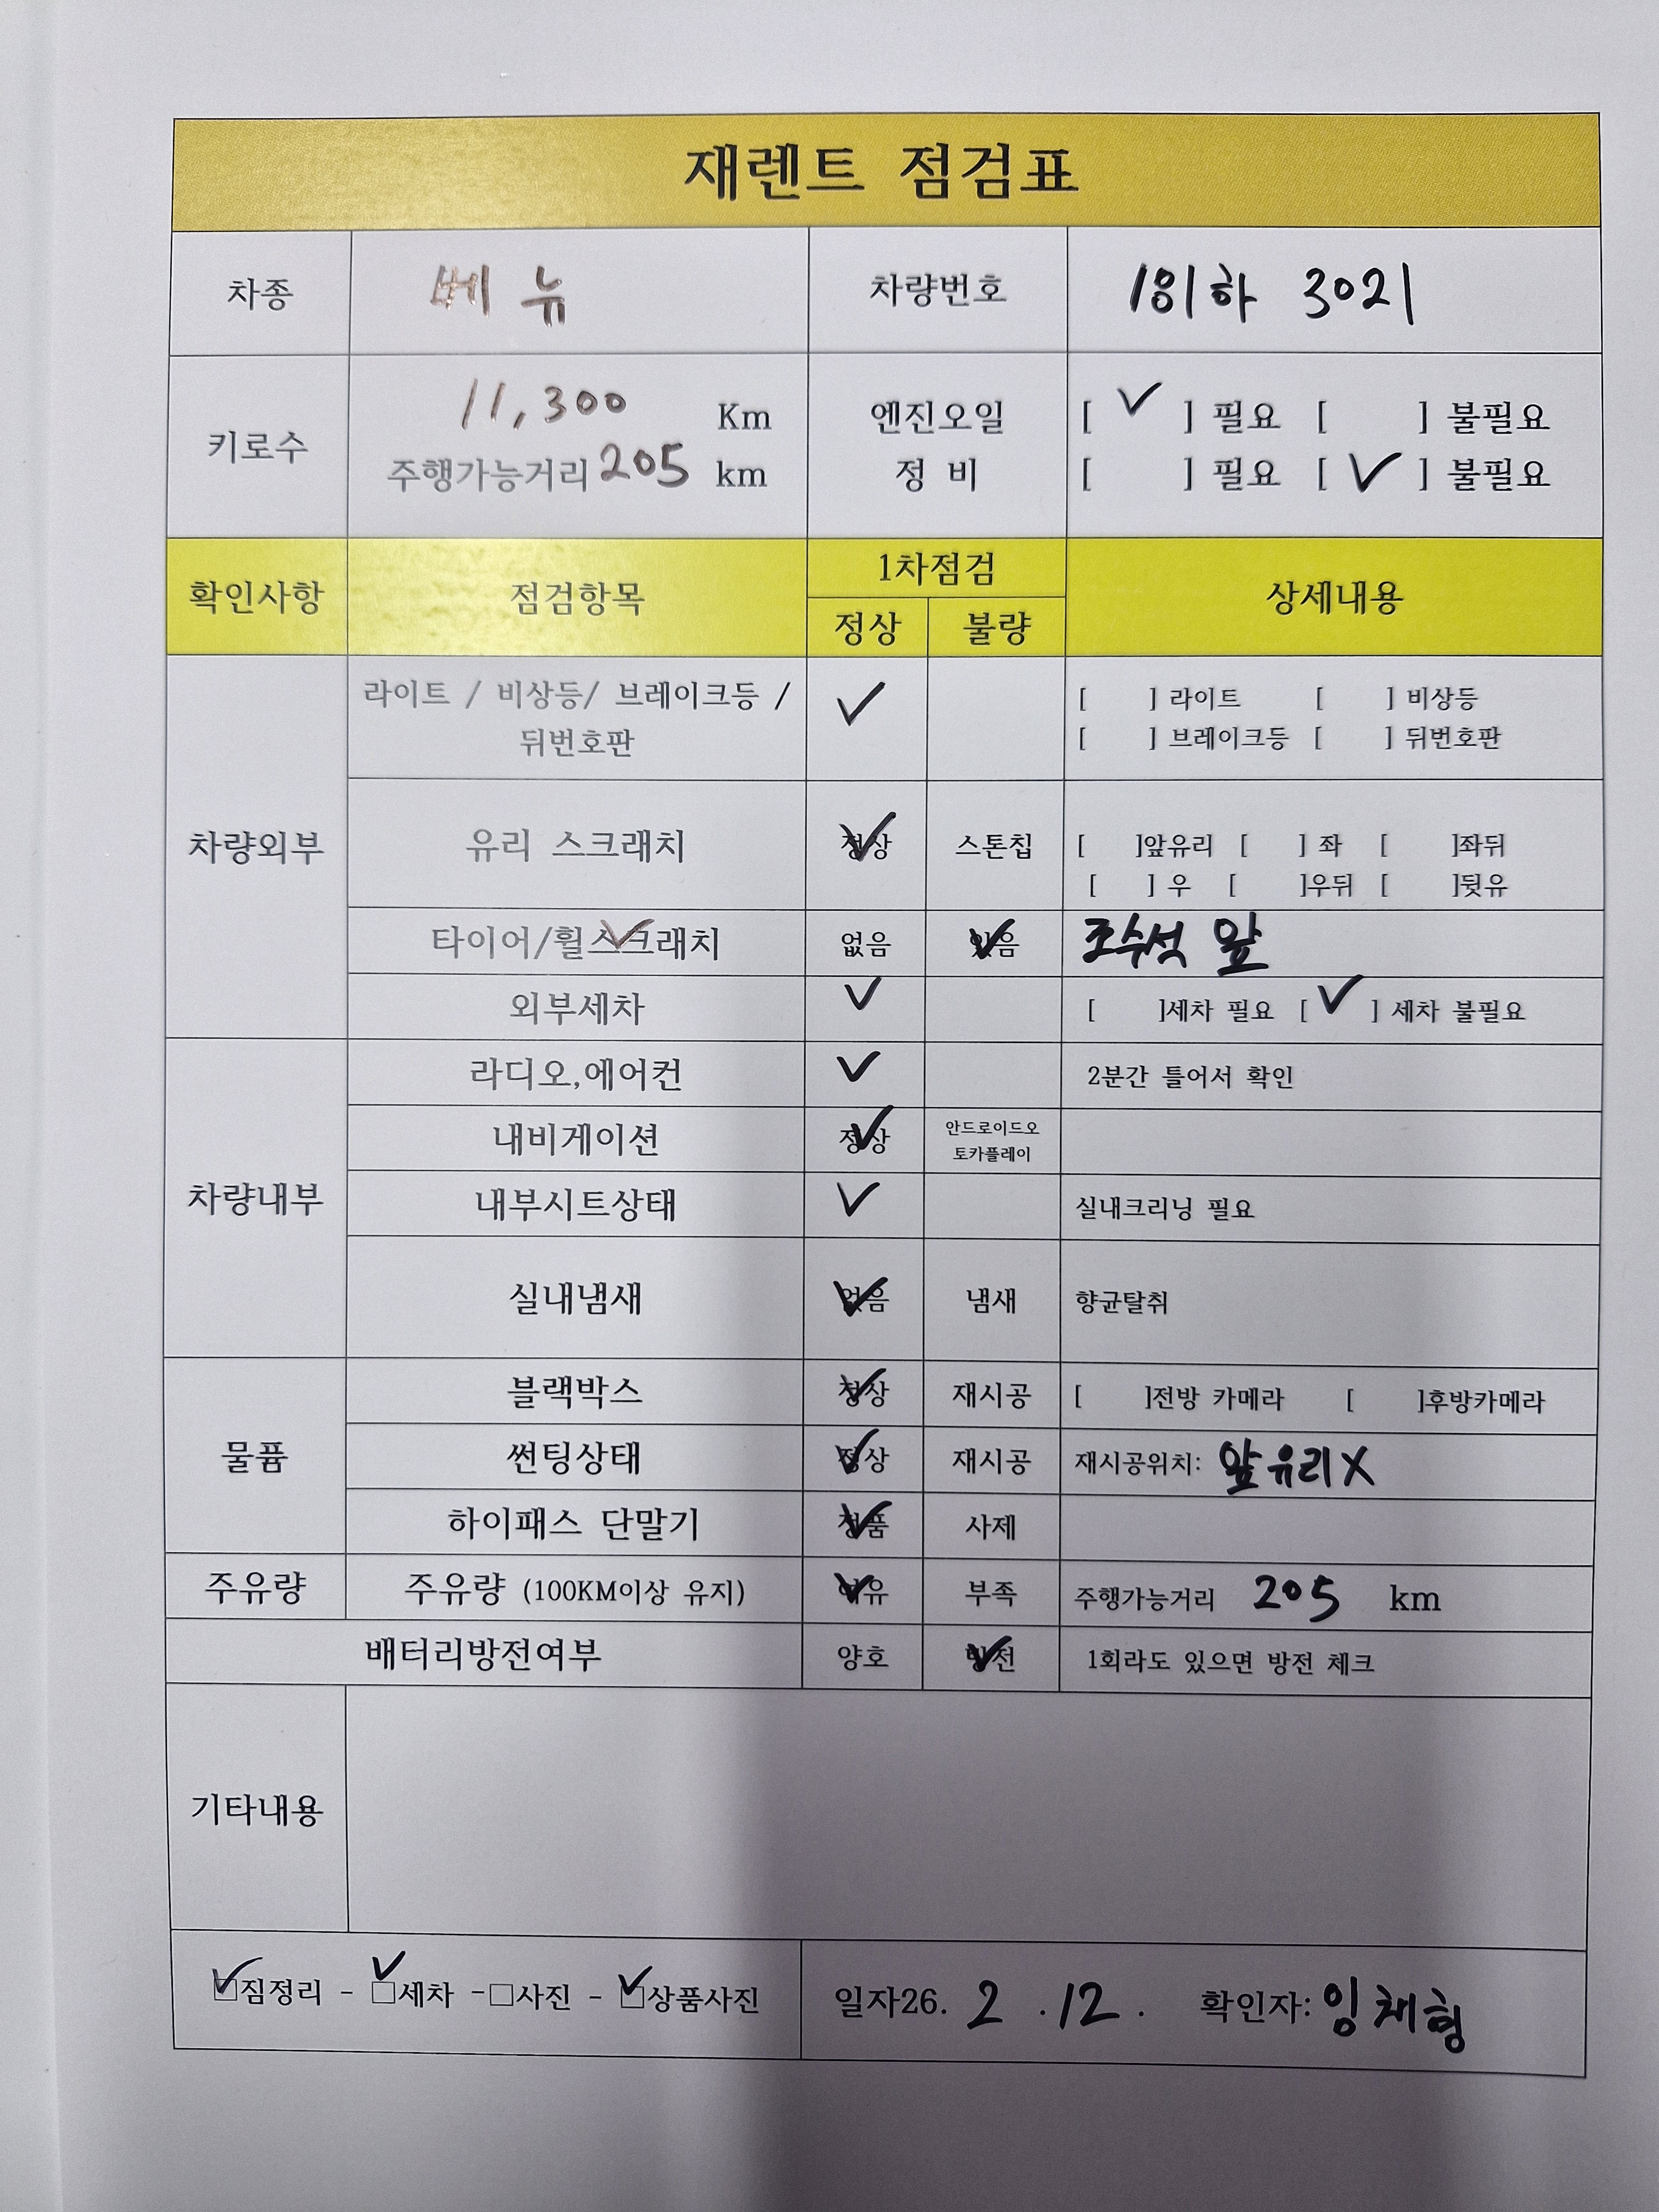 재렌트 점검표
차종 베뉴 차량번호 181하 3021
키로수 11,300 Km 엔진오일 [ ✓ ] 필요 [ ] 불필요
주행가능거리 205 km 정 비 [ ] 필요 [ ✓ ] 불필요
확인사항 점검항목 1차점검 상세내용
정상 불량
차량외부
라이트 / 비상등/ 브레이크등 / ✓ [ ] 라이트 [ ] 비상등
뒤번호판 [ ] 브레이크등 [ ] 뒤번호판
유리 스크래치 정상 ✓ 스톤칩 [ ]앞유리 [ ] 좌 [ ]좌뒤
[ ] 우 [ ]우뒤 [ ]뒷유
타이어/휠스크래치 ✓ 없음 있음 ✓ 조수석 앞
외부세차 ✓ [ ]세차 필요 [ ✓ ] 세차 불필요
차량내부
라디오,에어컨 ✓ 2분간 틀어서 확인
내비게이션 정상 ✓ 안드로이드오
토카플레이
내부시트상태 ✓ 실내크리닝 필요
실내냄새 없음 ✓ 냄새 향균탈취
물품
블랙박스 정상 ✓ 재시공 [ ]전방 카메라 [ ]후방카메라
썬팅상태 정상 ✓ 재시공 재시공위치: 앞유리X
하이패스 단말기 정품 ✓ 사제
주유량 주유량 (100KM이상 유지) 여유 ✓ 부족 주행가능거리 205 km
배터리방전여부 양호 방전 ✓ 1회라도 있으면 방전 체크
기타내용
☑짐정리 - ☑세차 -□사진 - ☑상품사진 일자26. 2 . 12 . 확인자: 임채형